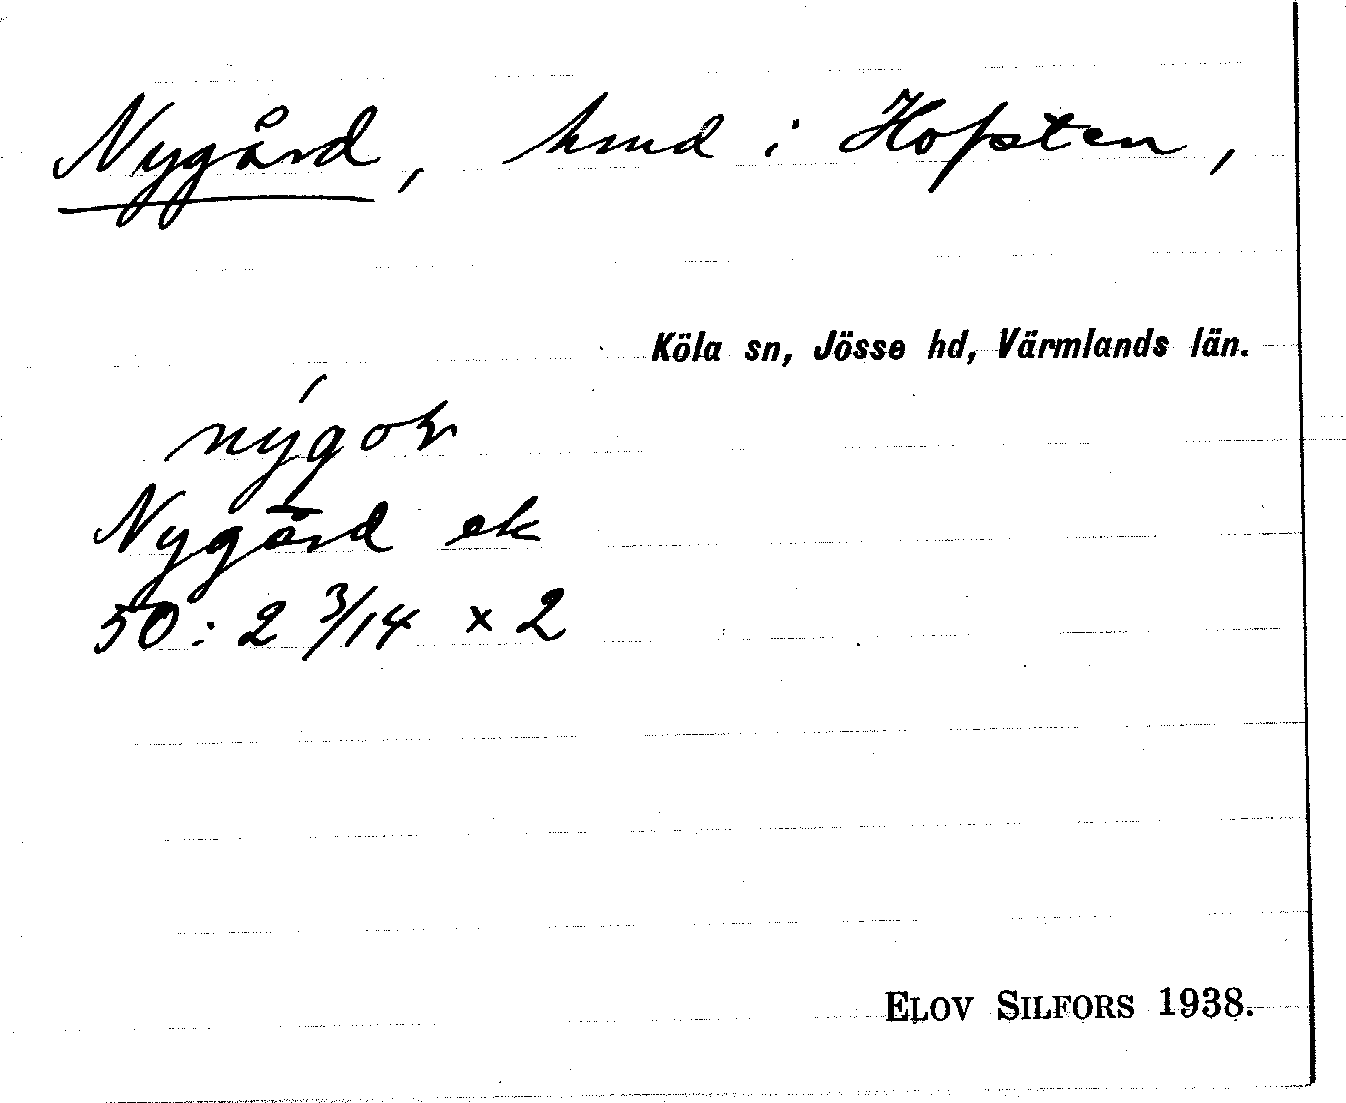 Nygård, hmd i Hofsten,
Köla sn, Jösse hd, Värmlands län.
nýgoṙ
Nygård ek
50:2 3/14 x 2
ELOV SILFORS 1938.